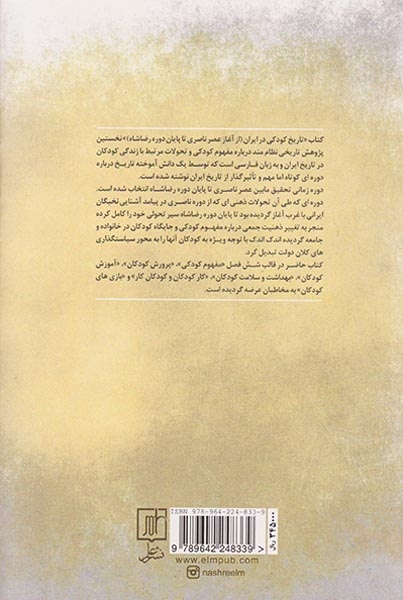 کتاب «تاریخ کودکی در ایران (از آغاز عصر ناصری تا پایان دوره رضاشاه)» نخستین
پژوهش تاریخی نظام مند درباره مفهوم کودکی و تحولات مرتبط با زندگی کودکان
در تاریخ ایران و به زبان فارسی است که توسط یک دانش آموخته تاریخ درباره
دوره ای کوتاه اما مهم و تأثیرگذار از تاریخ ایران نوشته شده است.
دوره زمانی تحقیق مابین عصر ناصری تا پایان دوره رضاشاه انتخاب شده است.
دوره ای که طی آن تحولات ذهنی ای که از دوره ناصری در پیامد آشنایی نخبگان
ایرانی با غرب آغاز گردیده بود تا پایان دوره رضاشاه سیر تحولی خود را کامل کرده
منجر به تغییر ذهنیت جمعی درباره مفهوم کودکی و جایگاه کودکان در خانواده و
جامعه گردیده اندک اندک با توجه ویژه به کودکان آنها را به محور سیاستگذاری
های کلان دولت تبدیل کرد.
کتاب حاضر در قالب شش فصل «مفهوم کودکی»، «پرورش کودکان»، «آموزش
کودکان»، «بهداشت و سلامت کودکان»، «کار کودکان و کودکان کار» و «بازی های
کودکان» به مخاطبان عرضه گردیده است.
ISBN 978-964-224-833-9
9 789642 248339
۳۴۵۰۰۰ ریال
نشر علم
www.elmpub.com
nashreelm